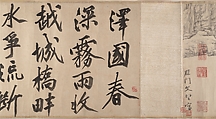 澤國春
深霧雨收
越城橋畔
水爭流斷